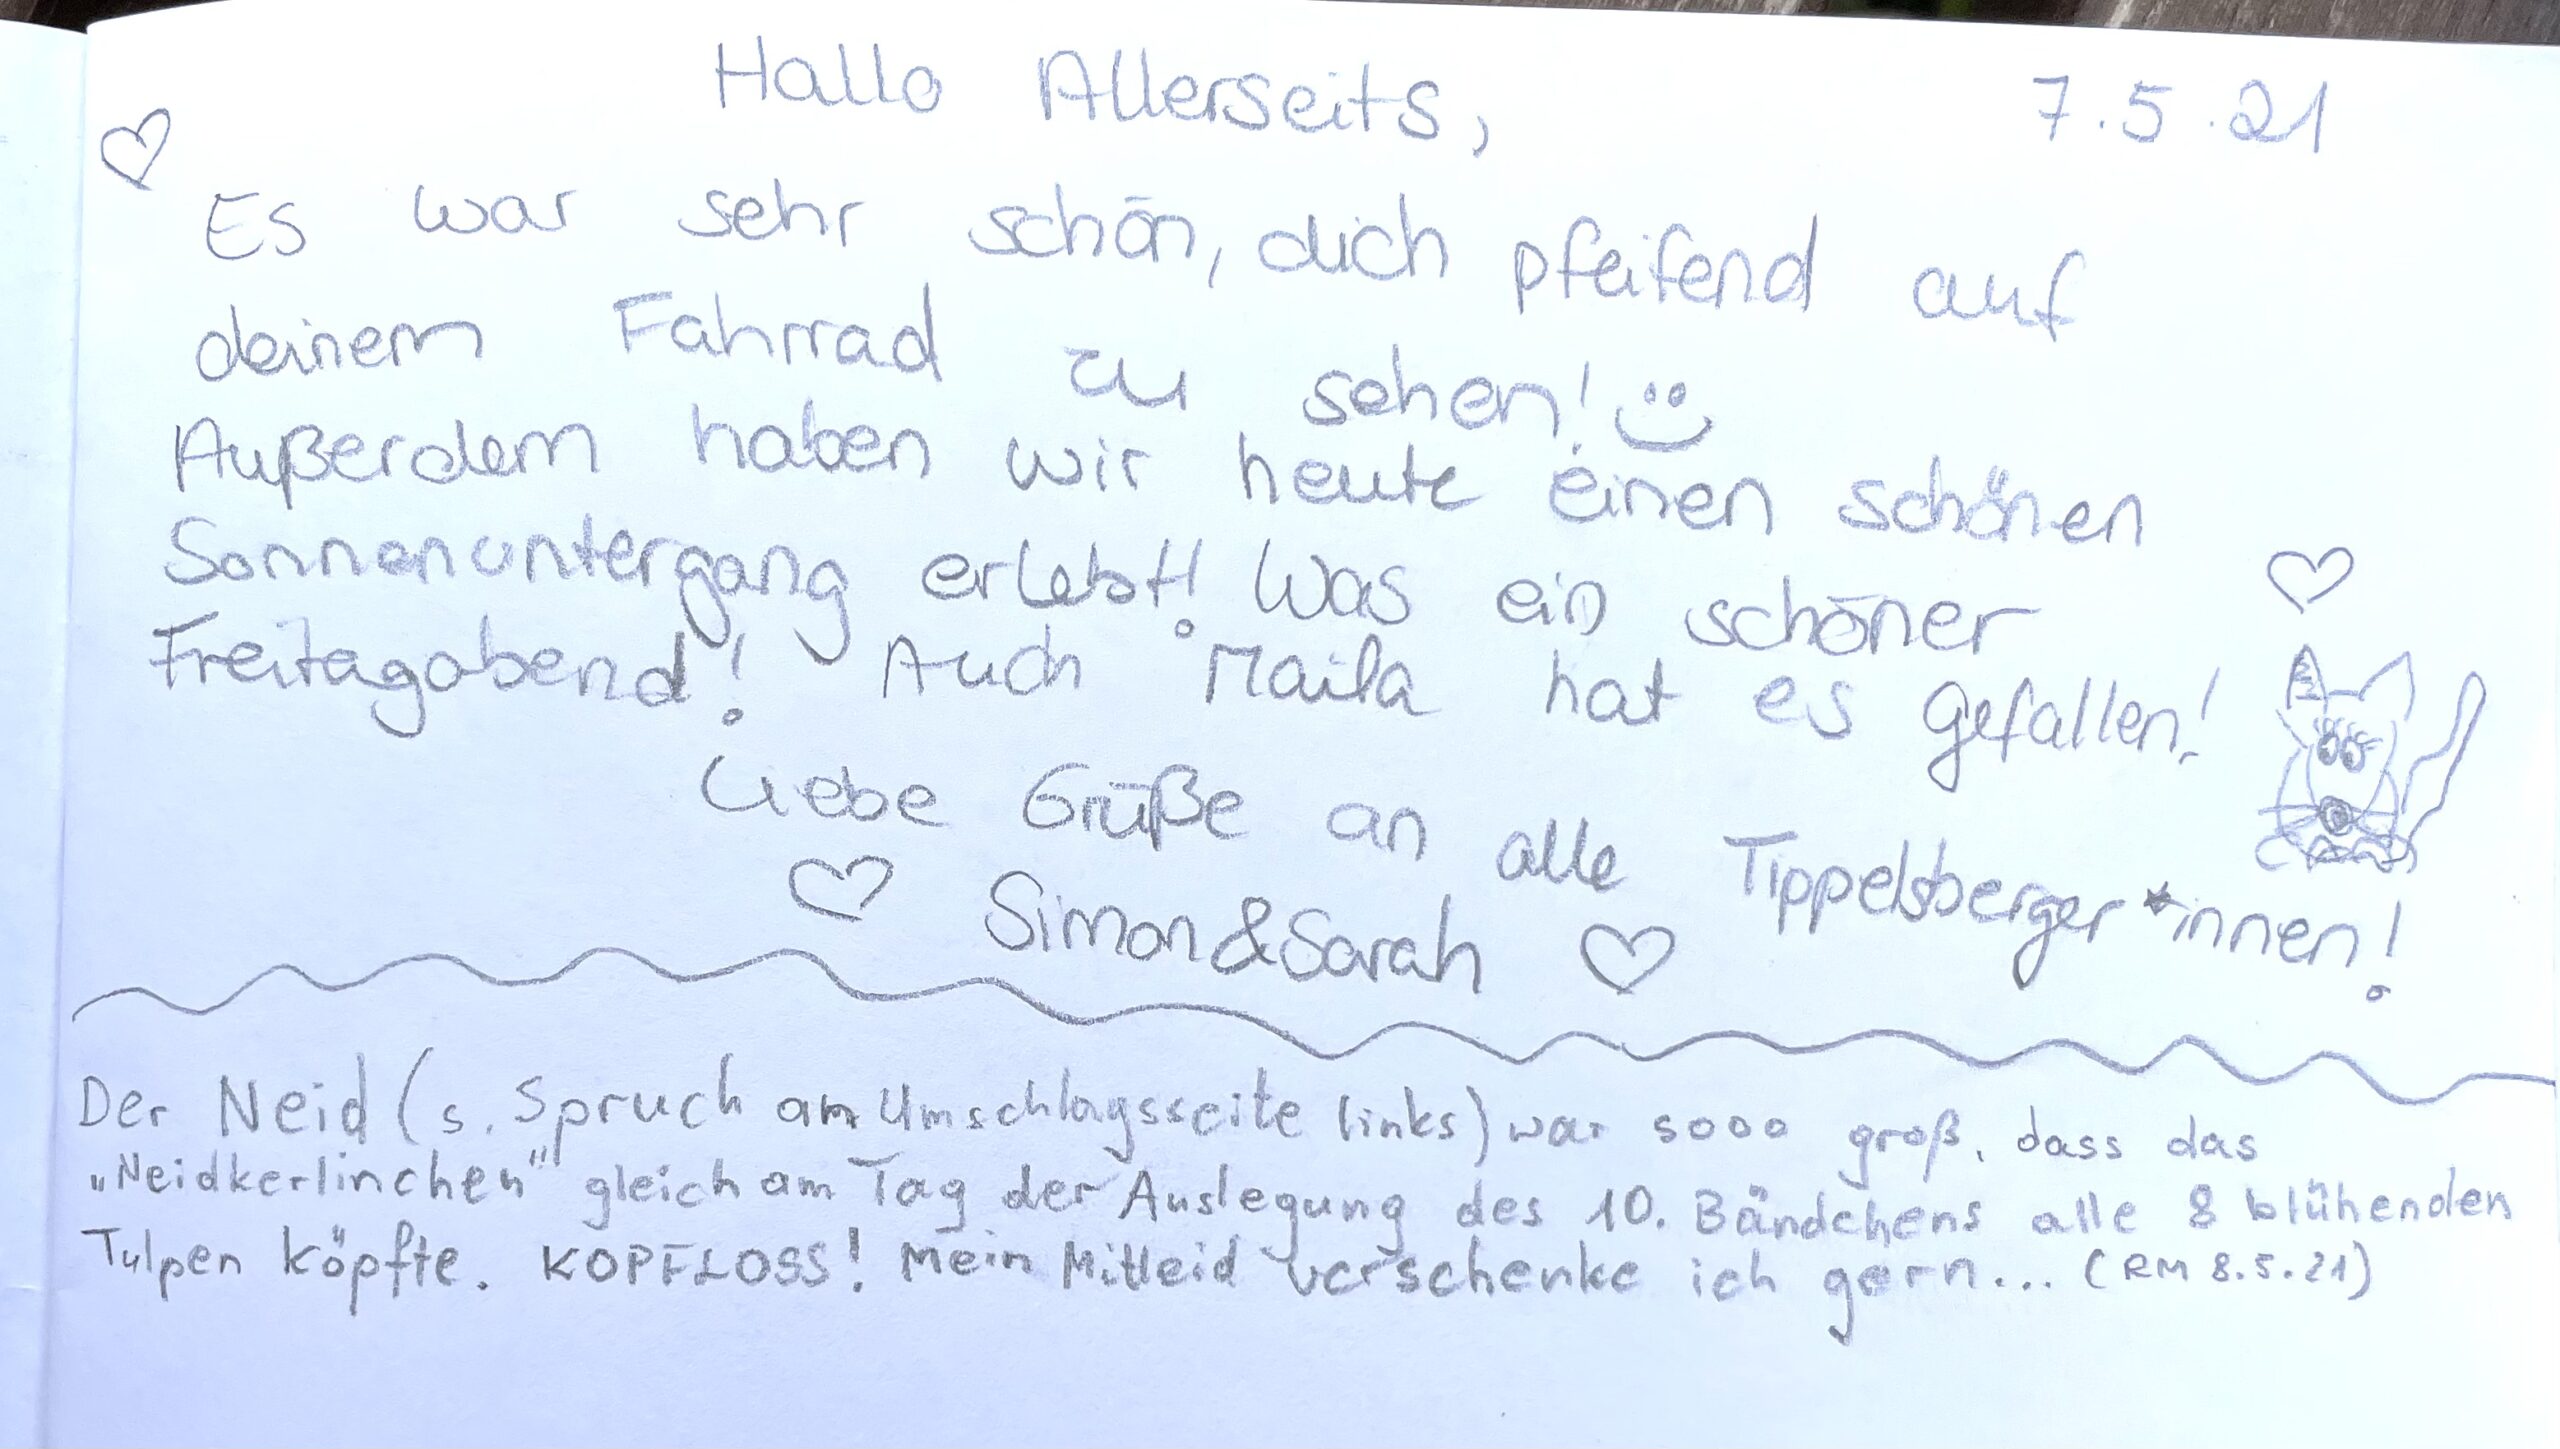 Hallo Allerseits, 7.5.21
Es war sehr schön, dich pfeifend auf
deinem Fahrrad zu sehen!
Außerdem haben wir heute einen schönen
Sonnenuntergang erlebt! Was ein schöner
Freitagabend! Auch Maila hat es gefallen!
Liebe Grüße an alle Tippelsberger*innen!
Simon & Sarah
Der Neid (s. Spruch am Umschlagsseite links) war sooo groß, dass das
„Neidkerlinchen" gleich am Tag der Auslegung des 10. Bändchens alle 8 blühenden
Tulpen köpfte. KOPFLOSS! Mein Mitleid verschenke ich gern... (RM 8.5.21)